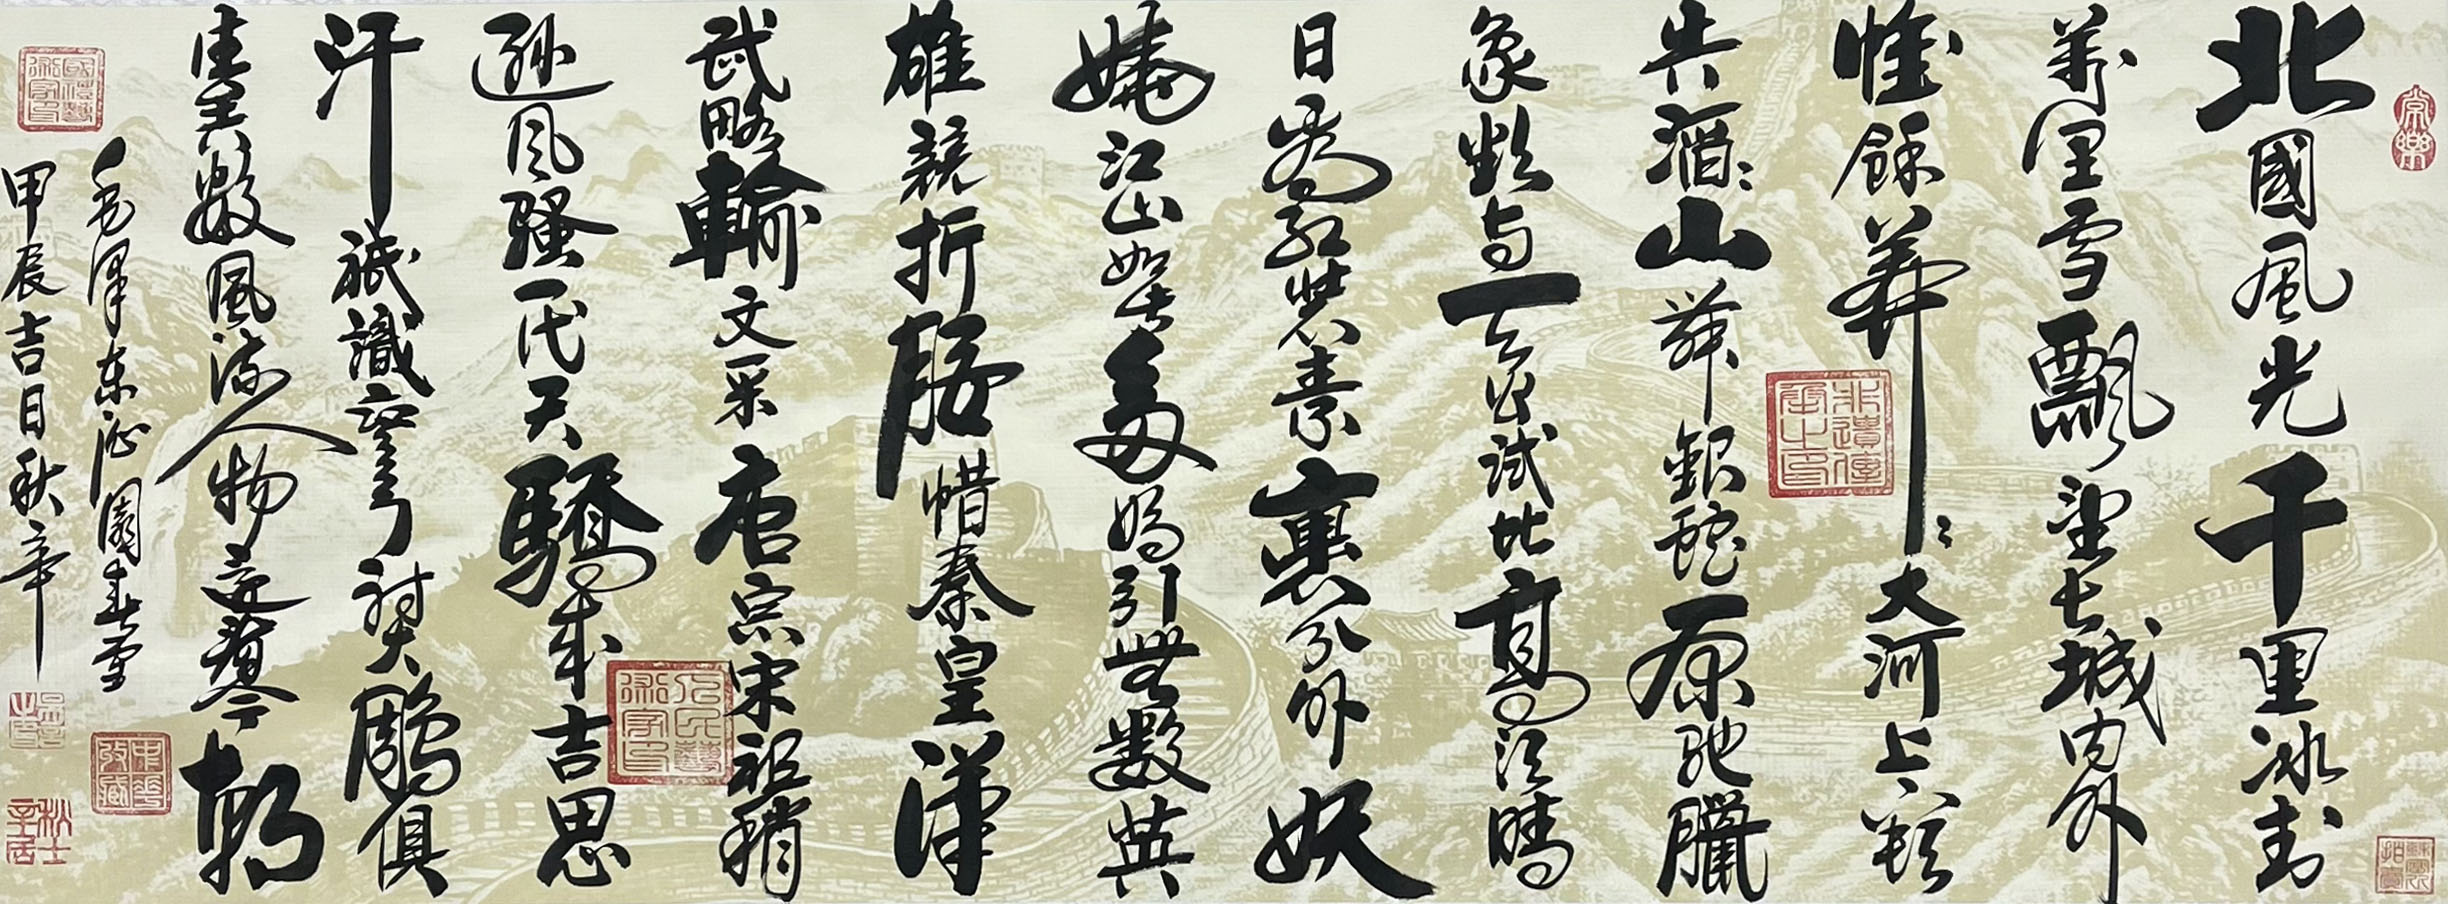 常樂
北國風光千里冰封
萬里雪飄望長城内外
惟餘莽〻大河上下頓
失滔〻山舞銀蛇原馳臘
象欲与天公試比高須晴
日看紅裝素裹分外妖
嬈江山如此多嬌引無數英
雄競折腰惜秦皇漢
武略輸文采唐宗宋祖稍
遜风騷一代天驕成吉思
汗祇識彎弓射大鵰俱
往矣數風流人物還看今朝
毛澤東沁園春雪
甲辰吉日秋辛
非遺傳承之印
人民藝術家印
國禮藝術家印
中華收藏